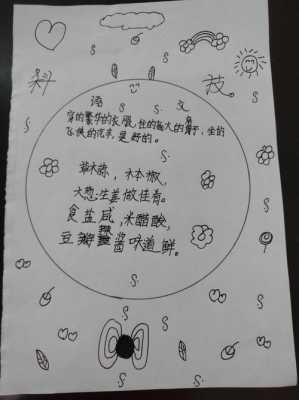 科 技
语 文
穿的繁华的衣服，住的高大的房子，坐的
飞快的汽车，是好的。
草木蔬，木本椒，
大葱生姜做佳肴。
食盐咸，米醋酸，
豆瓣酱味道鲜。